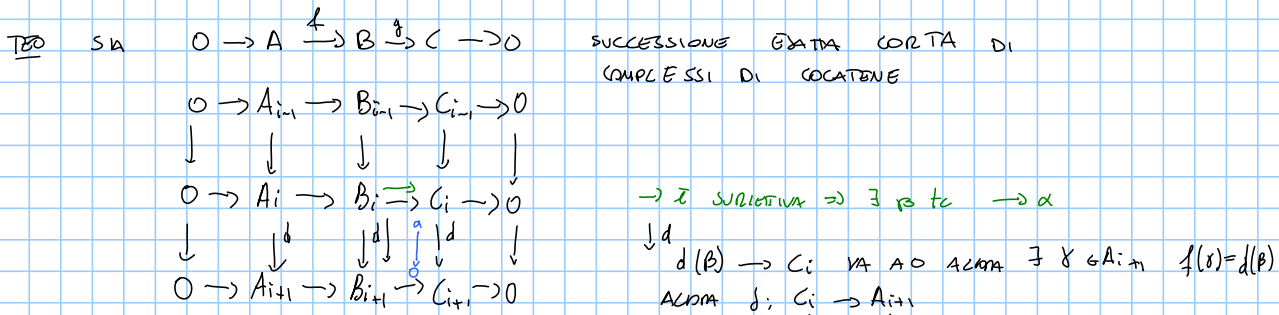 TEO SIA 0 → A →f B →g C → 0 SUCCESSIONE ESATTA CORTA DI
COMPLESSI DI COCATENE
0 → Ai-1 → Bi-1 → Ci-1 → 0
↓ ↓ ↓ ↓ ↓
0 → Ai → Bi → Ci → 0 → È SURIETTIVA ⇒ ∃ β tc → α
↓ ↓d ↓d ↓ a ↓ 0 ↓d ↓ ↓d
d(β) → Ci VA A 0 ALLORA ∃ γ ∈ Ai+1 f(γ)=d(β)
0 → Ai+1 → Bi+1 → Ci+1 → 0 ALLORA δ: Ci → Ai+1